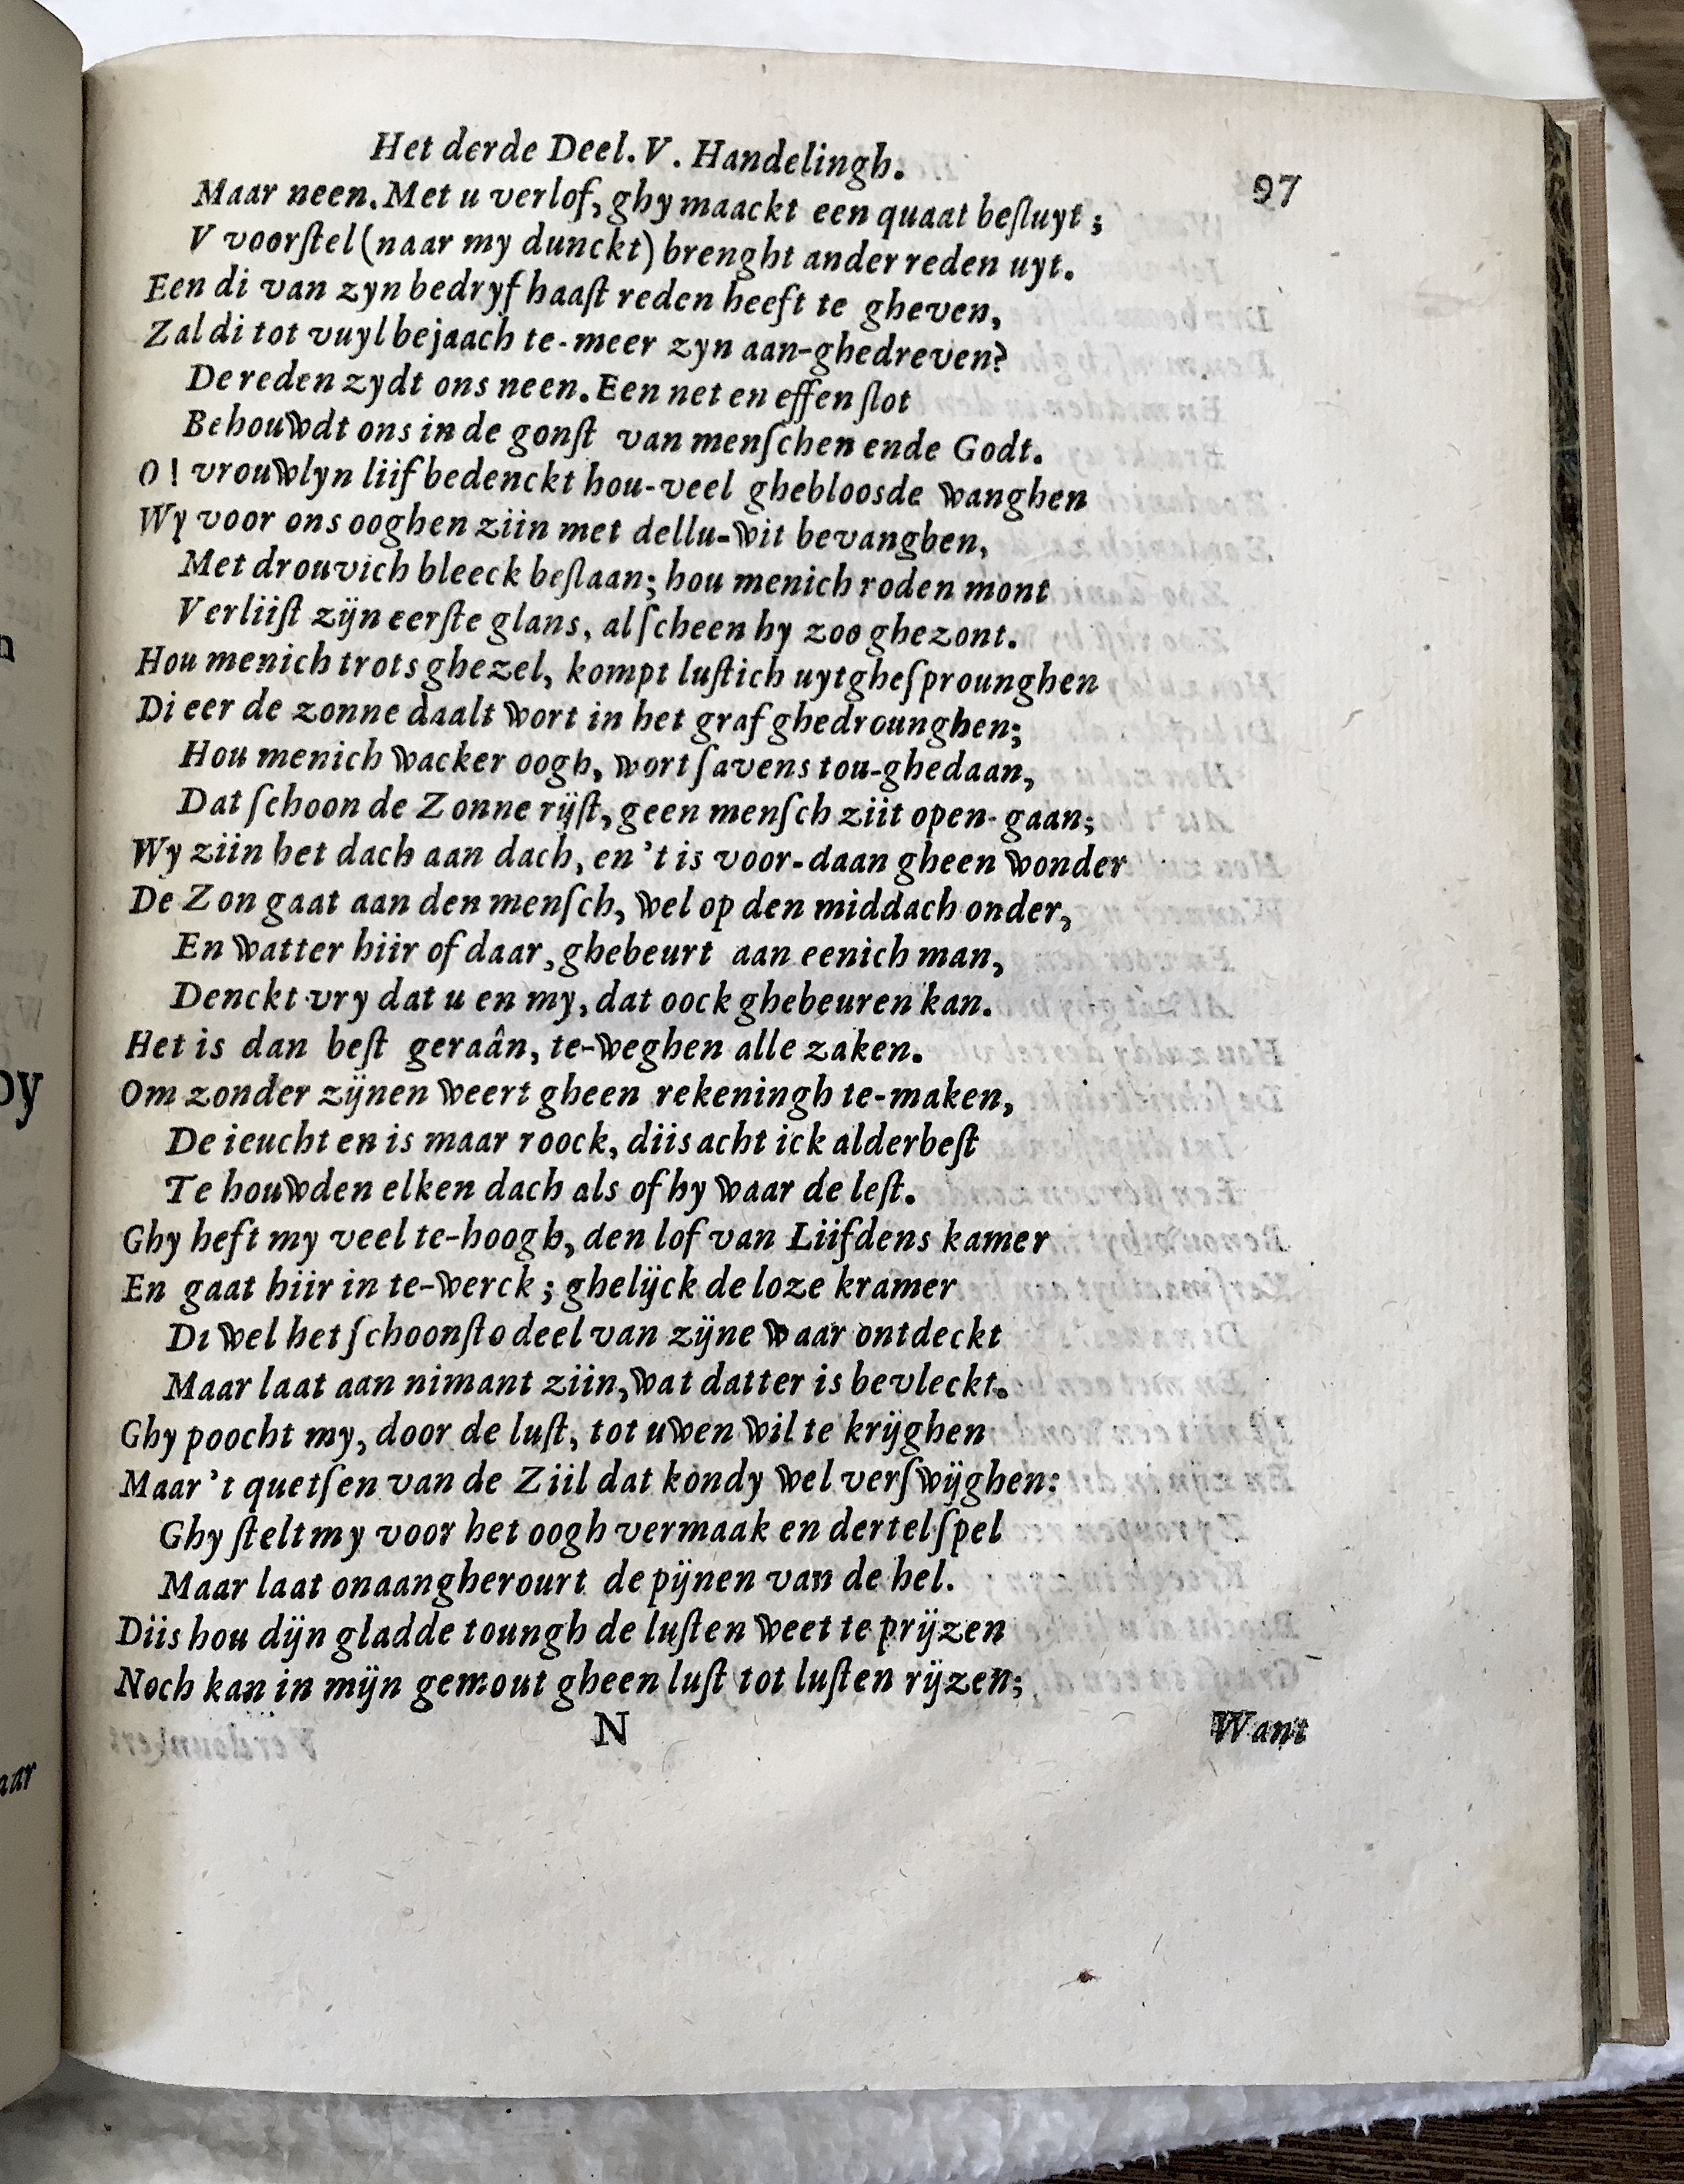 Het derde Deel. V. Handelingh.
97
Maar neen. Met u verlof, ghy maackt een quaat beſluyt;
V voorſtel (naar my dunckt) brenght ander reden uyt.
Een di van zyn bedryf haaſt reden heeft te gheven,
Zal di tot vuyl bejaach te-meer zyn aan-ghedreven?
De reden zydt ons neen. Een net en effen ſlot
Behouwdt ons in de gonſt van menſchen ende Godt.
O! vrouwlyn liif bedenckt hou-veel ghebloosde wanghen
Wy voor ons ooghen ziin met dellu-wit bevanghen,
Met drouvich bleeck beſlaan; hou menich roden mont
Verliiſt zijn eerſte glans, al ſcheen hy zoo ghezont.
Hou menich trots ghezel, kompt luſtich uytgheſprounghen
Di eer de zonne daalt wort in het graf ghedrounghen;
Hou menich wacker oogh, wort ſavens tou-ghedaan,
Dat ſchoon de Zonne rijſt, geen menſch ziit open-gaan;
Wy ziin het dach aan dach, en 't is voor-daan gheen wonder
De Zon gaat aan den menſch, wel op den middach onder,
En watter hiir of daar, ghebeurt aan eenich man,
Denckt vry dat u en my, dat oock ghebeuren kan.
Het is dan beſt geraân, te-weghen alle zaken.
Om zonder zijnen weert gheen rekeningh te-maken,
De ieucht en is maar roock, diis acht ick alderbeſt
Te houwden elken dach als of hy waar de leſt.
Ghy heft my veel te-hoogh, den lof van Liifdens kamer
En gaat hiir in te-werck; ghelijck de loze kramer
Di wel het ſchoonſto deel van zijne waar ontdeckt
Maar laat aan nimant ziin, wat datter is bevleckt.
Ghy poocht my, door de luſt, tot uwen wil te krijghen
Maar 't quetſen van de Ziil dat kondy wel verſwijghen:
Ghy ſtelt my voor het oogh vermaak en dertel ſpel
Maar laat onaangherourt de pijnen van de hel.
Diis hou dijn gladde toungh de luſten weet te prijzen
Noch kan in mijn gemout gheen luſt tot luſten rijzen;
N
Want